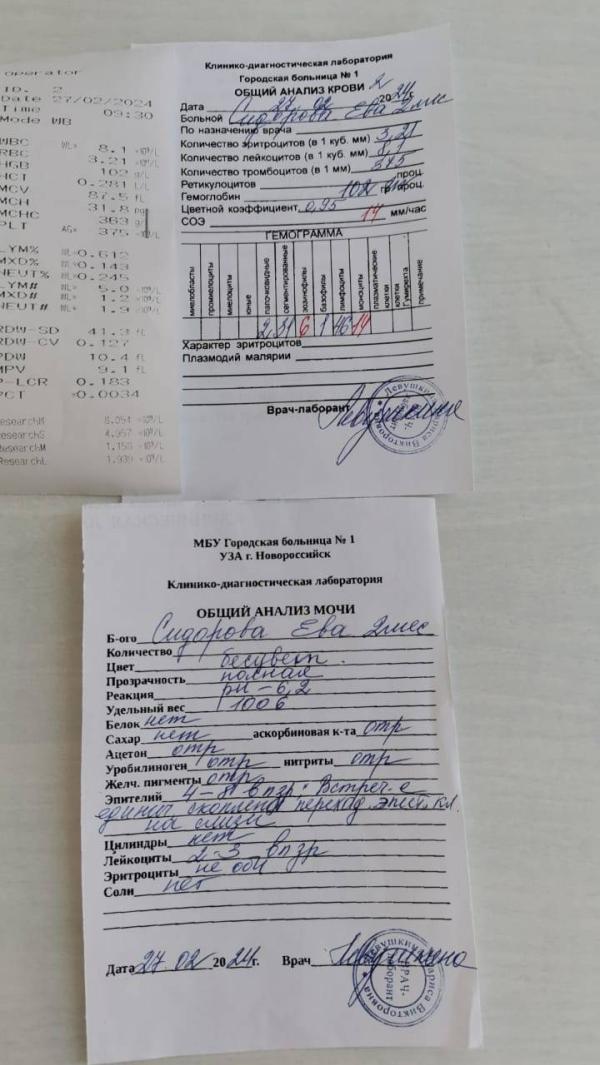 operator
ID. 2
Date 27/02/2024
Time 09:30
Mode WB
WBC WL* 8.1 ×10⁹/L
RBC 3.21 ×10¹²/L
HGB 102 g/L
HCT 0.281 L/L
MCV 87.5 fL
MCH 31.8 pg
MCHC 363 g/L
PLT AG* 375 ×10⁹/L
LYM% WL*0.612
MXD% WL*0.143
NEUT% WL*0.245
LYM# WL* 5.0 ×10⁹/L
MXD# WL* 1.2 ×10⁹/L
NEUT# WL* 1.9 ×10⁹/L
RDW-SD 41.3 fL
RDW-CV 0.127
PDW 10.4 fL
MPV 9.1 fL
P-LCR 0.183
PCT *0.0034
ResearchS 4.957 ×10⁹/L
ResearchM 1.158 ×10⁹/L
ResearchL 1.939 ×10⁹/L
Клинико-диагностическая лаборатория
Городская больница № 1
ОБЩИЙ АНАЛИЗ КРОВИ 2
Дата 27 02 2024г.
Больной Сидорова Ева 2мес
По назначению врача
Количество эритроцитов (в 1 куб. мм) 3,21
Количество лейкоцитов (в 1 куб. мм) 8,1
Количество тромбоцитов (в 1 мм) 375
Ретикулоцитов проц.
Гемоглобин 102 г/л проц.
Цветной коэффициент 0,95
СОЭ 14 мм/час
ГЕМОГРАММА
миелобласты
промиелоциты
миелоциты
юные
палочкоядерные
сегментированные
эозинофилы
базофилы
лимфоциты
моноциты
плазматические клетки
клетки Гумпрехта
примечание
2 31 6 1 46 14
Характер эритроцитов
Плазмодий малярии
Врач-лаборант
Девушкина Лариса Викторовна
МБУ Городская больница № 1
УЗА г. Новороссийск
Клинико-диагностическая лаборатория
ОБЩИЙ АНАЛИЗ МОЧИ
Б-ого Сидорова Ева 2мес
Количество
Цвет бесцвет.
Прозрачность полная
Реакция рН – 6,2
Удельный вес 1006
Белок нет
Сахар нет аскорбиновая к-та отр
Ацетон отр
Уробилиноген отр нитриты отр
Желч. пигменты отр
Эпителий 4-8 в п зр. Встреч-е
единич скопления переход. эпит. кл.
на слизи
Цилиндры нет
Лейкоциты 2-3 в п зр
Эритроциты не обн
Соли нет
Дата 27.02 2024г. Врач
Девушкина Лариса Викторовна
ВРАЧ-лаборант